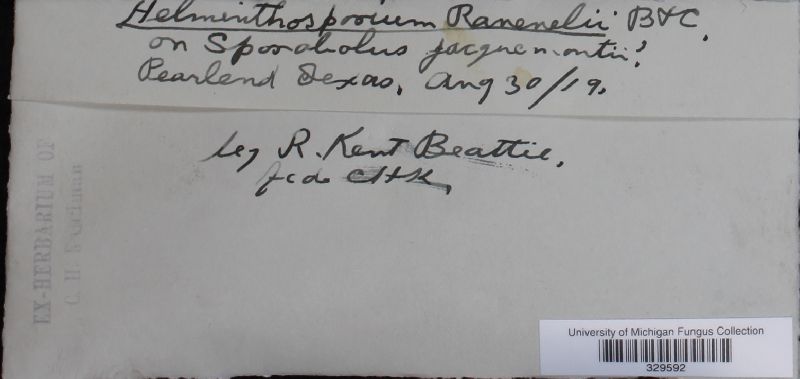 Helminthosporium Ravenelii B & C.
on Sporobolus jacquemontii.
Pearland Texas, Aug 30/19.
leg R. Kent Beattie.
EX-HERBARIUM OF
C. H. Kauffman
University of Michigan Fungus Collection
329592